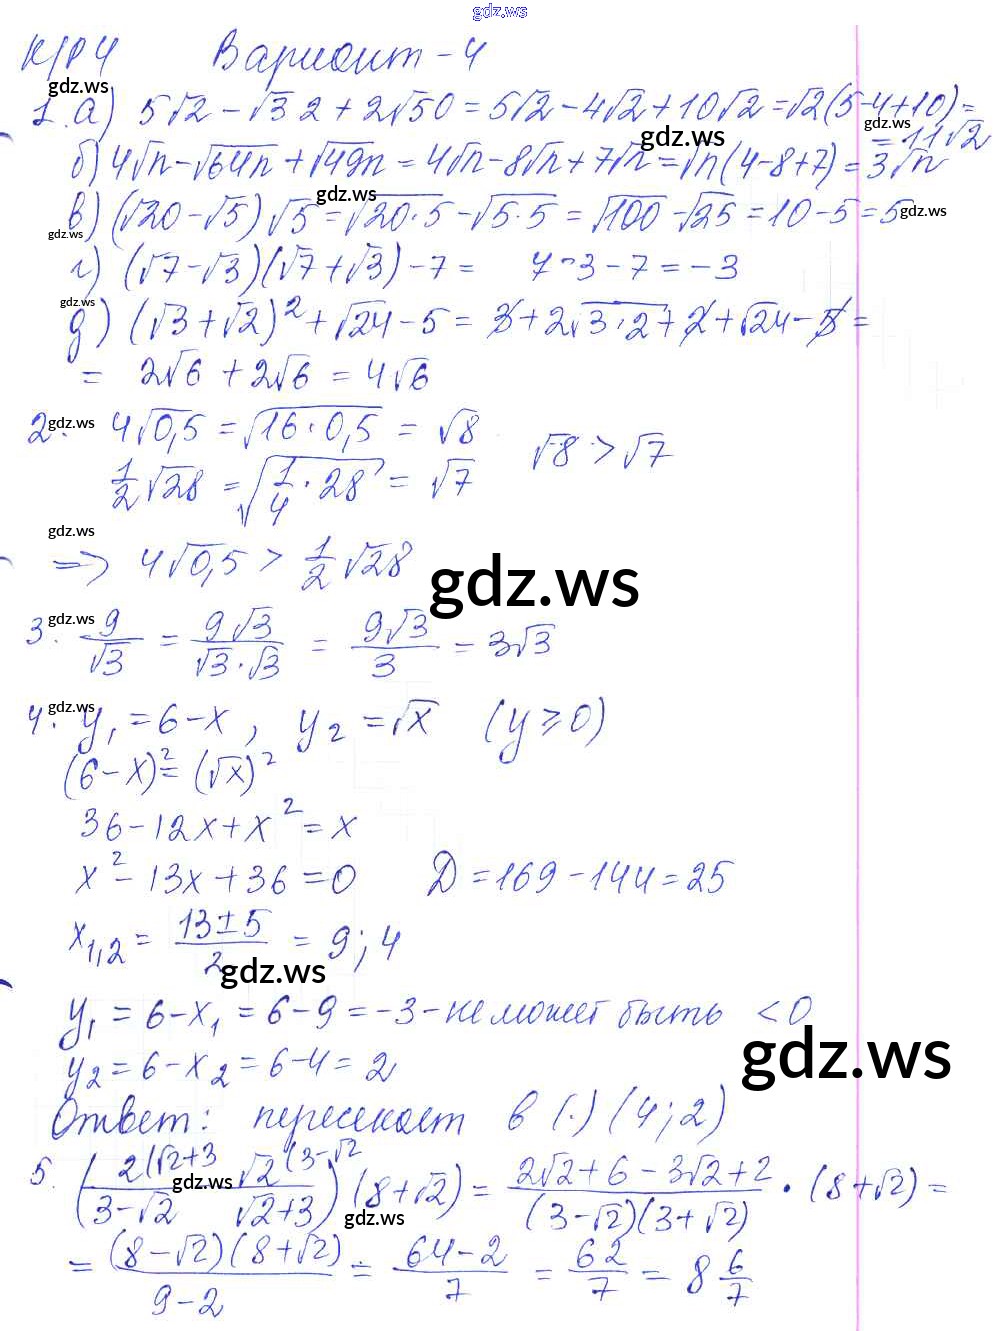 gdz.ws
К/Р 4 Вариант - 4
gdz.ws
1. а) 5√2 - √32 + 2√50 = 5√2 - 4√2 + 10√2 = √2(5-4+10) =
gdz.ws
= 11√2
б) 4√n - √64n + √49n = 4√n - 8√n + 7√n = √n(4-8+7) = 3√n
gdz.ws
в) (√20 - √5)√5 = √20·5 - √5·5 = √100 - √25 = 10 - 5 = 5
gdz.ws
gdz.ws
г) (√7 - √3)(√7 + √3) - 7 = 7 - 3 - 7 = -3
gdz.ws
д) (√3 + √2)² + √24 - 5 = 3 + 2√3·2 + 2 + √24 - 5 =
= 2√6 + 2√6 = 4√6
gdz.ws
2. 4√0,5 = √16·0,5 = √8 √8 > √7
1/2 √28 = √1/4 · 28 = √7
gdz.ws
=> 4√0,5 > 1/2 √28
gdz.ws
gdz.ws
3. 9/√3 = 9√3/√3·√3 = 9√3/3 = 3√3
gdz.ws
4. y₁ = 6 - x, y₂ = √x (y ≥ 0)
(6 - x)² = (√x)²
36 - 12x + x² = x
x² - 13x + 36 = 0 Д = 169 - 144 = 25
x₁,₂ = 13±5/2 = 9; 4
gdz.ws
y₁ = 6 - x₁ = 6 - 9 = -3 - не может быть < 0
gdz.ws
y₂ = 6 - x₂ = 6 - 4 = 2
Ответ: пересекает в (·) (4; 2)
5. (2(√2+3/3-√2 √2(3-√2/√2+3)(8+√2) = 2√2+6-3√2+2/(3-√2)(3+√2) · (8+√2) =
gdz.ws
gdz.ws
= (8-√2)(8+√2)/9-2 = 64-2/7 = 62/7 = 8 6/7